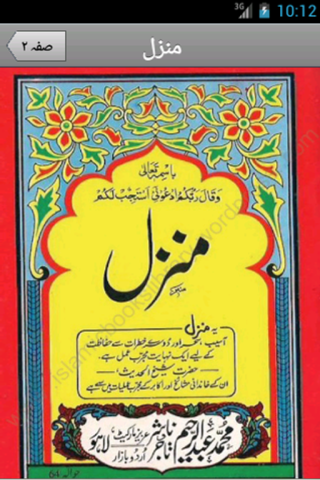 3G 10:12
صفہ ۲
منزل
باسمہ تعالیٰ
وَقَالَ رَبُّكُمُ ادْعُوْنِیْ اَسْتَجِبْ لَكُمْ
منزل
یہ منزل
آسیب، سحر اور دوسرے خطرات سے حفاظت
کے لیے ایک نہایت مجرب عمل ہے۔
حضرت شیخ الحدیث
ان کے خاندانی مشائخ اور اکابر کے مجرب عملیات میں سے ہے
محمد عبد الرحیم تاجر ناشر عزیز مارکیٹ اردو بازار لاہور
64